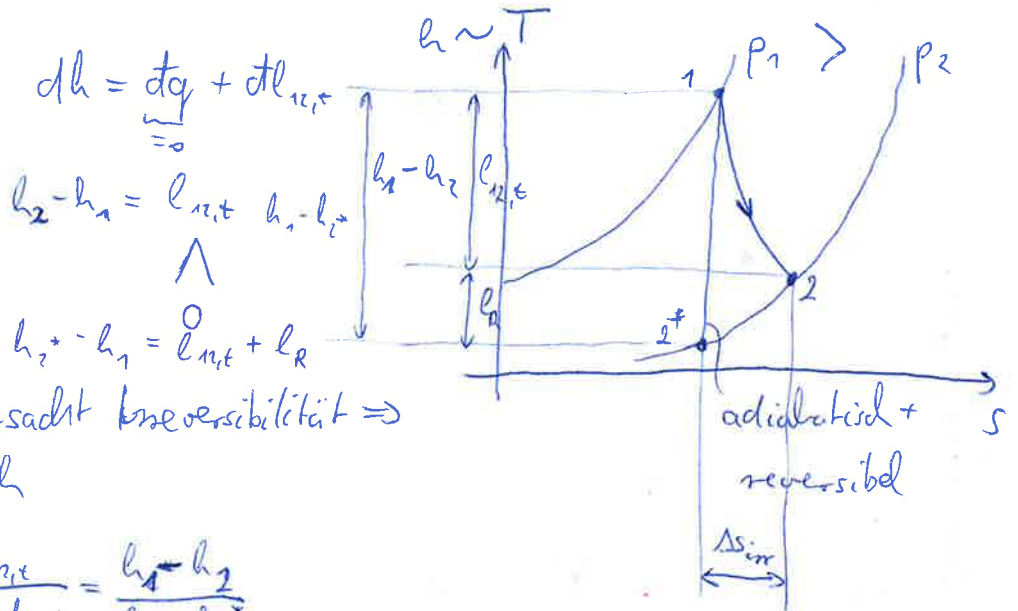 h ~ T
dh = đq + đl₁₂,t
=0
h₂ - h₁ = l₁₂,t h₁ - h₂*
∧
h₂* - h₁ = l₁₂,t + l_R
sacht Irreversibilität ⇒
h
12,t = h₁ - h₂
1
p₁ > p₂
h₁ - h₂
l₁₂,t
l_R
2
2*
s
adiabatisch +
reversibel
Δs_irr